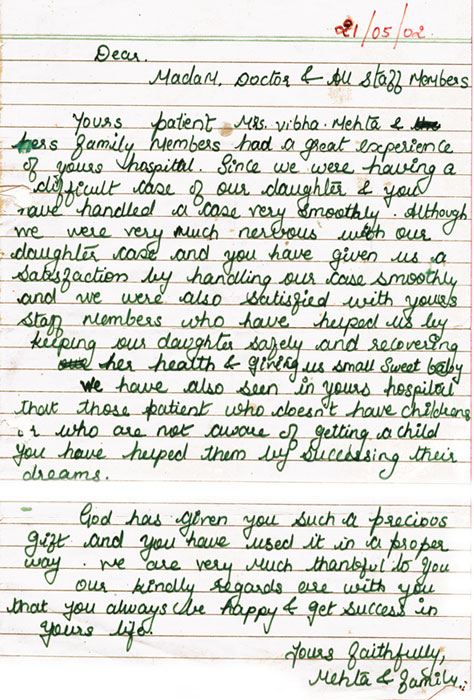 21/05/02
Dear.
Madam, Doctor & All Staff Members
Yours patient Mrs. Vibha. Mehta &
hers family Members had a great experience
of yours hospital. Since we were having a
difficult case of our daughter & you
have handled a case very smoothly. Although
we were very much nervous with our
daughter case and you have given us a
satisfaction by handling our case smoothly
and we were also satisfied with yours
staff members who have helped us by
keeping our daughter safely and recovering
her health & giving us small sweet baby
We have also seen in yours hospital
that those patient who doesn't have childrens
or who are not aware of getting a child
you have helped them by successing their
dreams.
God has given you such a precious
gift and you have used it in a proper
way. we are very much thankful to you
our kindly regards are with you
that you always be happy & get success in
yours life.
Yours faithfully,
Mehta & family.